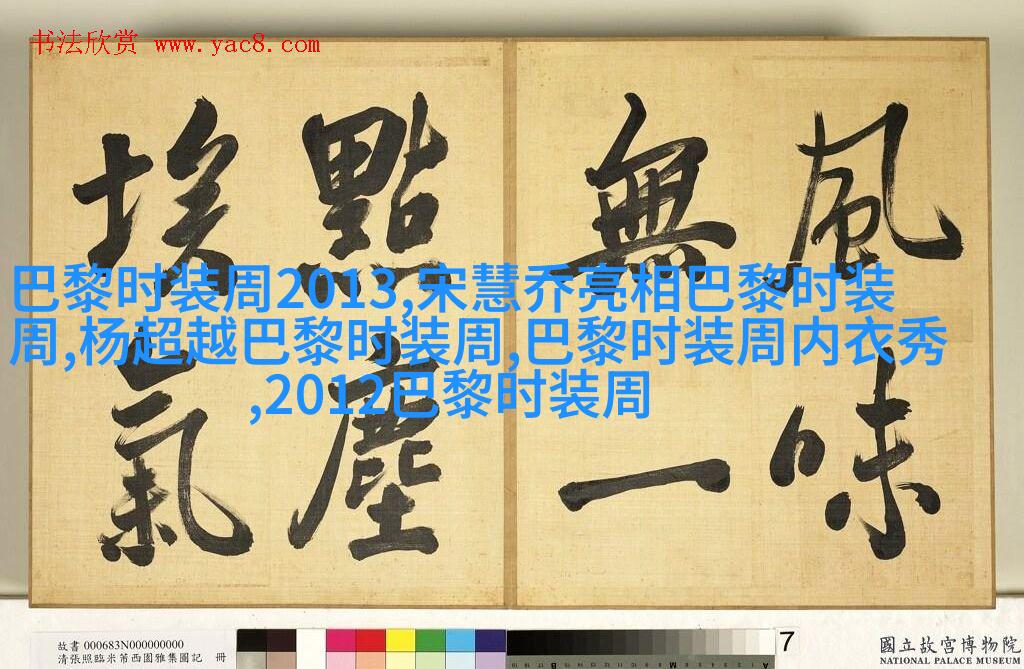 书法欣赏 www.yac8.com
風味
無一
點塵
埃氣
巴黎时装周2013,宋慧乔亮相巴黎时装
周,杨超越巴黎时装周,巴黎时装周内衣秀
,2012巴黎时装周
故書 000683N000000000
清張照臨米芾西園雅集圖記 冊
7
國立故宮博物院
NATIONAL PALACE MUSEUM